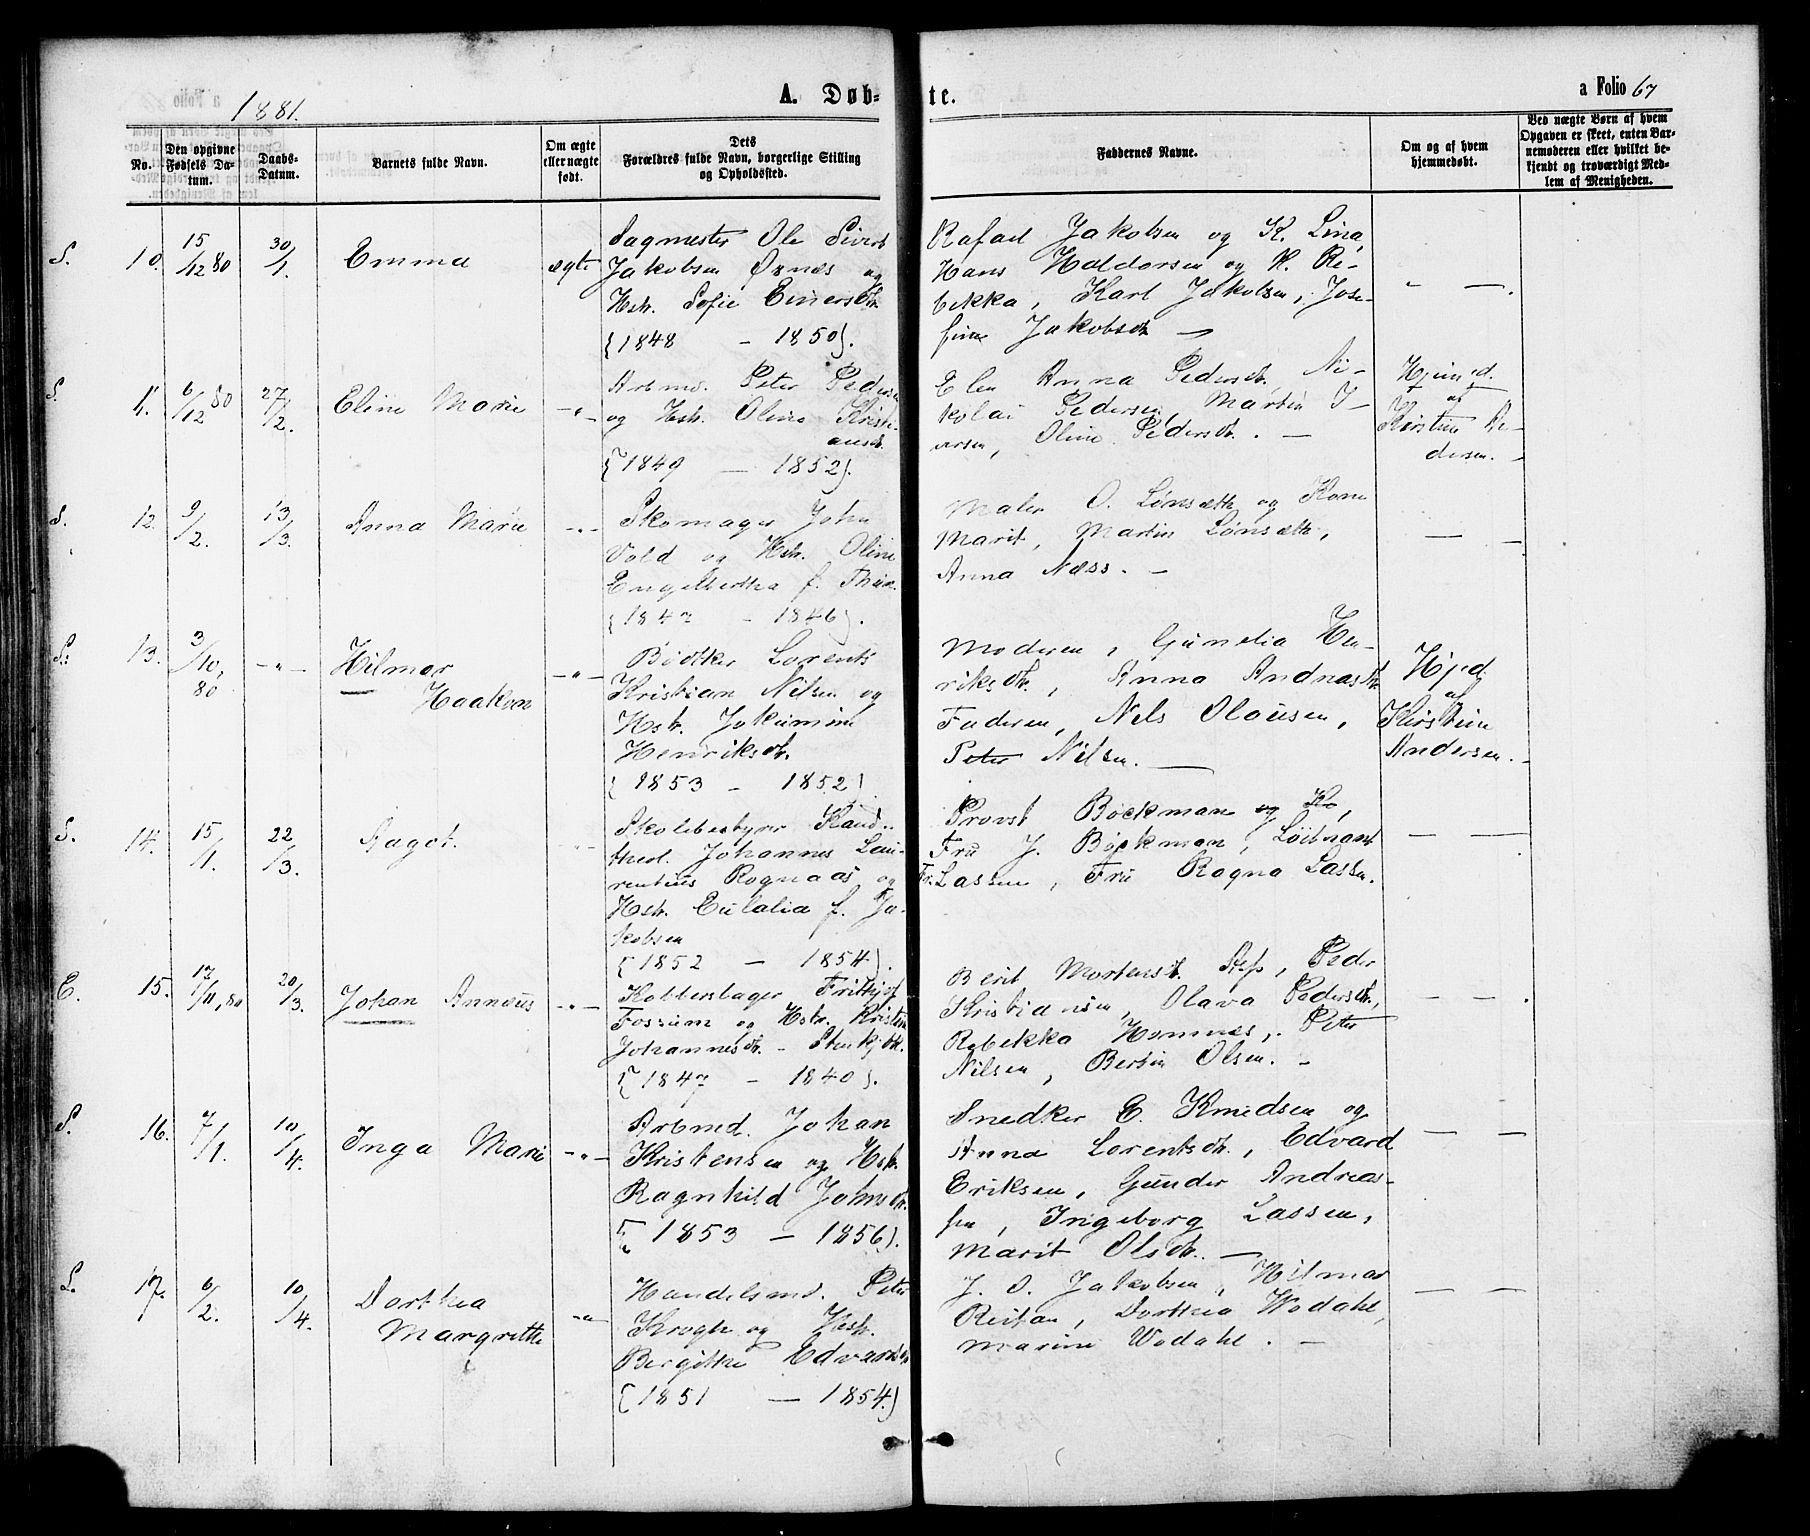 1881.
A. Døb-
te.
a Folio 67
No.
Den opgivne Fødsels Da-tum.
Daabs-Datum.
Barnets fulde Navn.
Om ægte eller uægte født.
Dets
Forældres fulde Navn, borgerlige Stilling
og Opholdssted.
Faddernes Navne.
Om og af hvem
hjemmedøbt.
Ved uægte Børn af hvem
Opgaven er skeet, enten Bar-
nemoderen eller hvilket be-
kjendt og troværdigt Med-
lem af Menigheden.
S. 10. 15/12 80 30/1. Emma ægte
Sagmester Ole Sivert
Jakobsen Øxnæs og
Hstr. Sofie Einersdtr.
{1848 - 1850}.
Rafael Jakobsen og K. Lina,
Hans Haldorsen og K. Re-
bekka, Karl Jakobsen, Jose-
fine Jakobsdtr. —
" —.
S. 11. 6/12 80 27/2. Eline Marie -"-
Arbmd. Peter Pedersen
og Hstr. Oline Kristi-
ansdtr.
{1849 — 1852}.
Elen Anna Pedersdtr., Ni-
kolai Pedersen, Martin I-
versen, Oline Pedersdtr. —
Hjemmed.
af
Kirstine An-
dersen. -
S. 12. 9/2. 13/3. Anna Marie -"-
Skomager John
Vold og Hstr. Oline
Engelbertha f. Thün.
{1847 - 1846}.
Maler O. Lønsætt og Kone
Marit, Martin Lønsætt,
Anna Næss. —
— -
S. 13. 3/10, 80 -"- Hilmar
Haakon -"-
Bødtker Lorents
Kristian Nilsen og
Hstr. Jakumine
Henriksdtr.
{1853 - 1852}
Moderen, Gunelia Hen-
riksdtr., Anna Andreasdtr.
Faderen, Nels Olausen,
Peter Nilsen. —
Hjd.
af
Kirstine
Andersen. -
S. 14. 15/1. 22/3. Aagot.
Skolebestyrer Kand.
theol. Johannes Lau-
rentius Rognaas og
Hstr. Eulalia f. Ja-
kobsen
{1852 — 1854}.
Provst Bøckman og Ko,
Fru J. Bøckman, Løitnant
Fr. Lassen, Fru Ragna Lassen.
— —
E. 15. 17/11, 80 20/3. Johan Annæus -"-
Kobberslager Frithjof
Fossum og Hstr. Kristine
Johannesdtr. - Stenkjær.
{1847 - 1840}.
Berit Mortensdtr. Steps, Peder
Kristiansen, Olava Pedersdtr.,
Rebekka Homnes, Peter
Nilsen, Bertin Olsen. -
— — .
S. 16. 7/1. 10/4. Inga Marie -"-
Arbmd. Johan
Kristensen og Hstr.
Ragnhild Johnsdtr.
{1853 — 1856}.
Snedker E. Knudsen og
Anna Lorentsdtr., Edvard
Eriksen, Gunder Andreas-
sen, Ingeborg Lassen,
Marit Olsdtr. —
— —
S. 17. 6/2. 10/4. Dorthea
Margrethe -"-
Handelsmd. Peter
Krogh og Hstr.
Bergitte Edvardsdtr.
{1851 — 1854.}
J. O. Jakobsen, Hilmar
Reitan, Dorthea Wodahl,
Marine Wodahl. —
— —